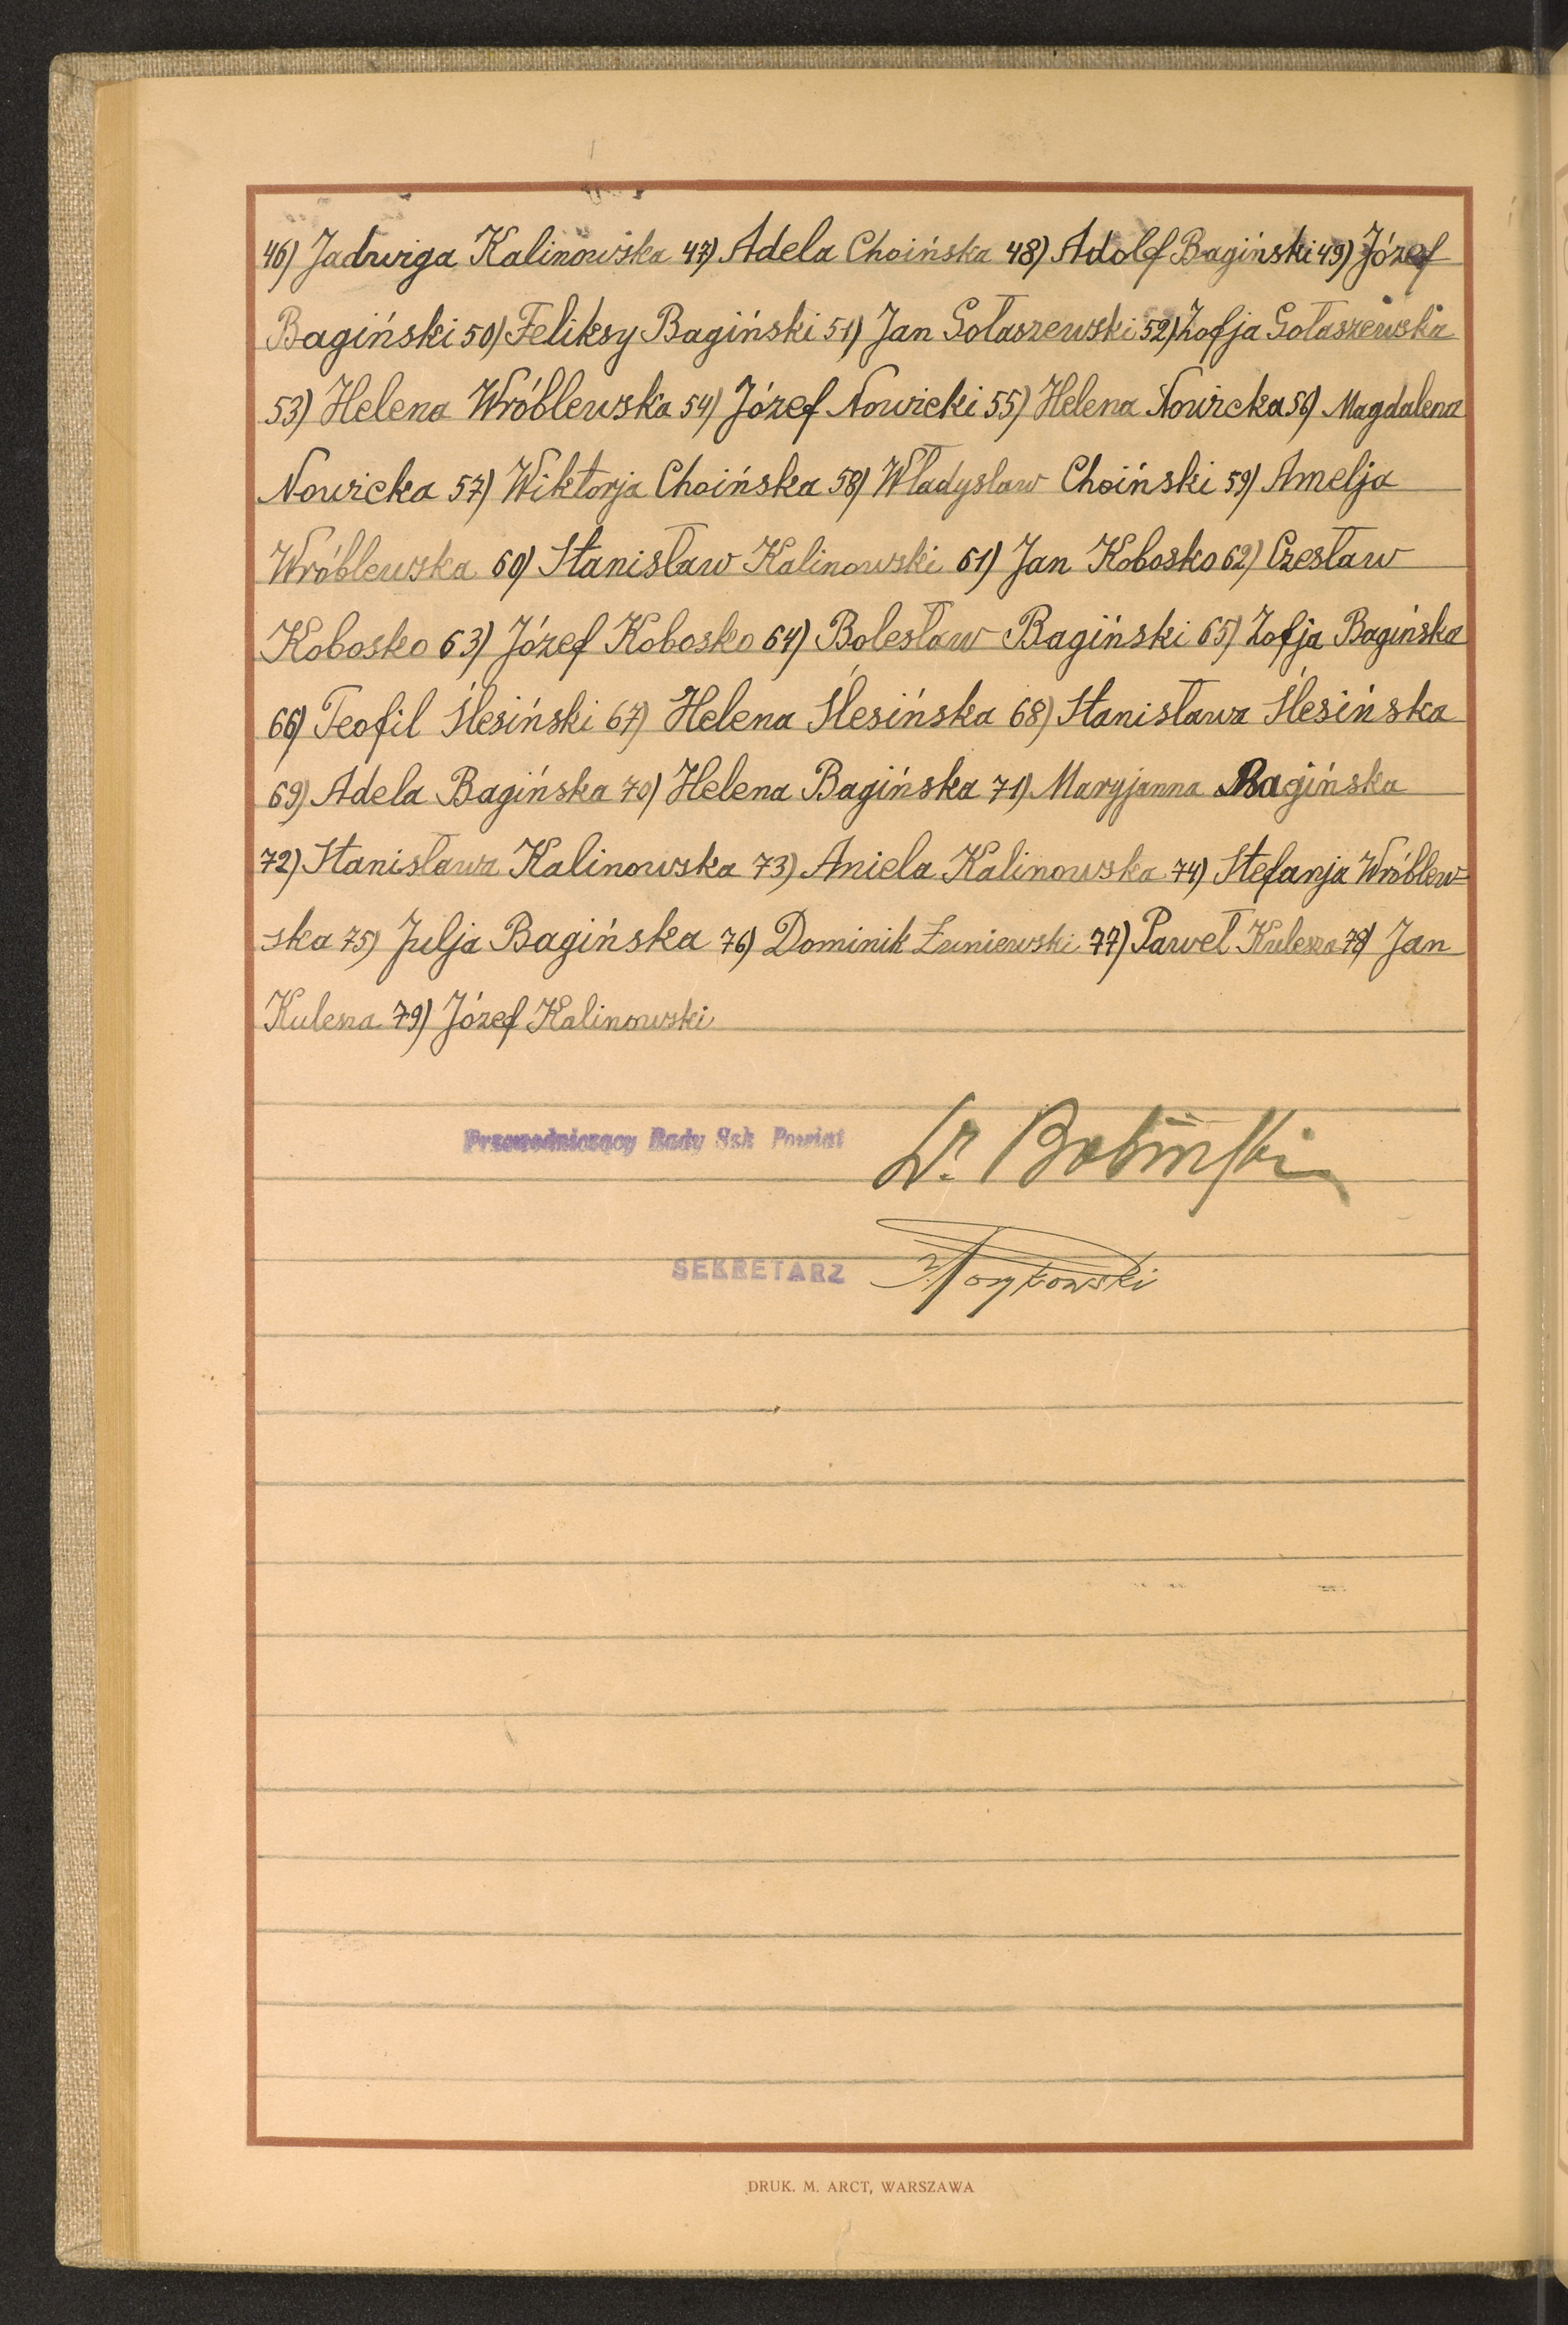 46) Jadwiga Kalinowska 47) Adela Choińska 48) Adolf Bagiński 49) Józef
Bagiński 50) Feliksy Bagiński 51) Jan Gołaszewski 52) Zofja Gołaszewska
53) Helena Wróblewska 54) Józef Nowicki 55) Helena Nowicka 56) Magdalena
Nowicka 57) Wiktorja Choińska 58) Władysław Choiński 59) Amelja
Wróblewska 60) Stanisław Kalinowski 61) Jan Kobosko 62) Czesław
Kobosko 63) Józef Kobosko 64) Bolesław Bagiński 65) Zofja Bagińska
66) Teofil Ślesiński 67) Helena Ślesińska 68) Stanisława Ślesińska
69) Adela Bagińska 70) Helena Bagińska 71) Maryjanna Bagińska
72) Stanisława Kalinowska 73) Aniela Kalinowska 74) Stefanja Wróblew-
ska 75) Julja Bagińska 76) Dominik Żuniewski 77) Paweł Kulesza 78) Jan
Kulesza 79) Józef Kalinowski
Przewodniczący Rady Szk Powiat
Dr.
SEKRETARZ
DRUK. M. ARCT, WARSZAWA